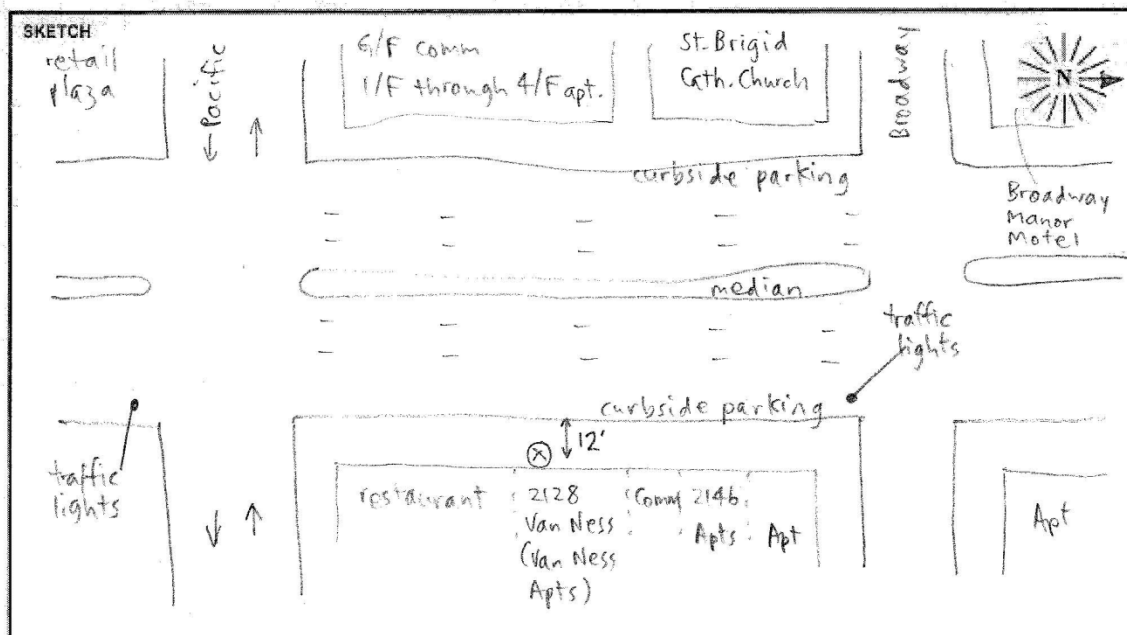 SKETCH
retail
plaza
← Pacific
G/F comm
1/F through 4/F apt.
St. Brigid
Cath. Church
Broadway
N
curbside parking
Broadway
Manor
Motel
median
traffic
lights
curbside parking
12'
X
traffic
lights
restaurant
2128
Van Ness
(Van Ness
Apts)
Comm
2146
Apts
Apt
Apt